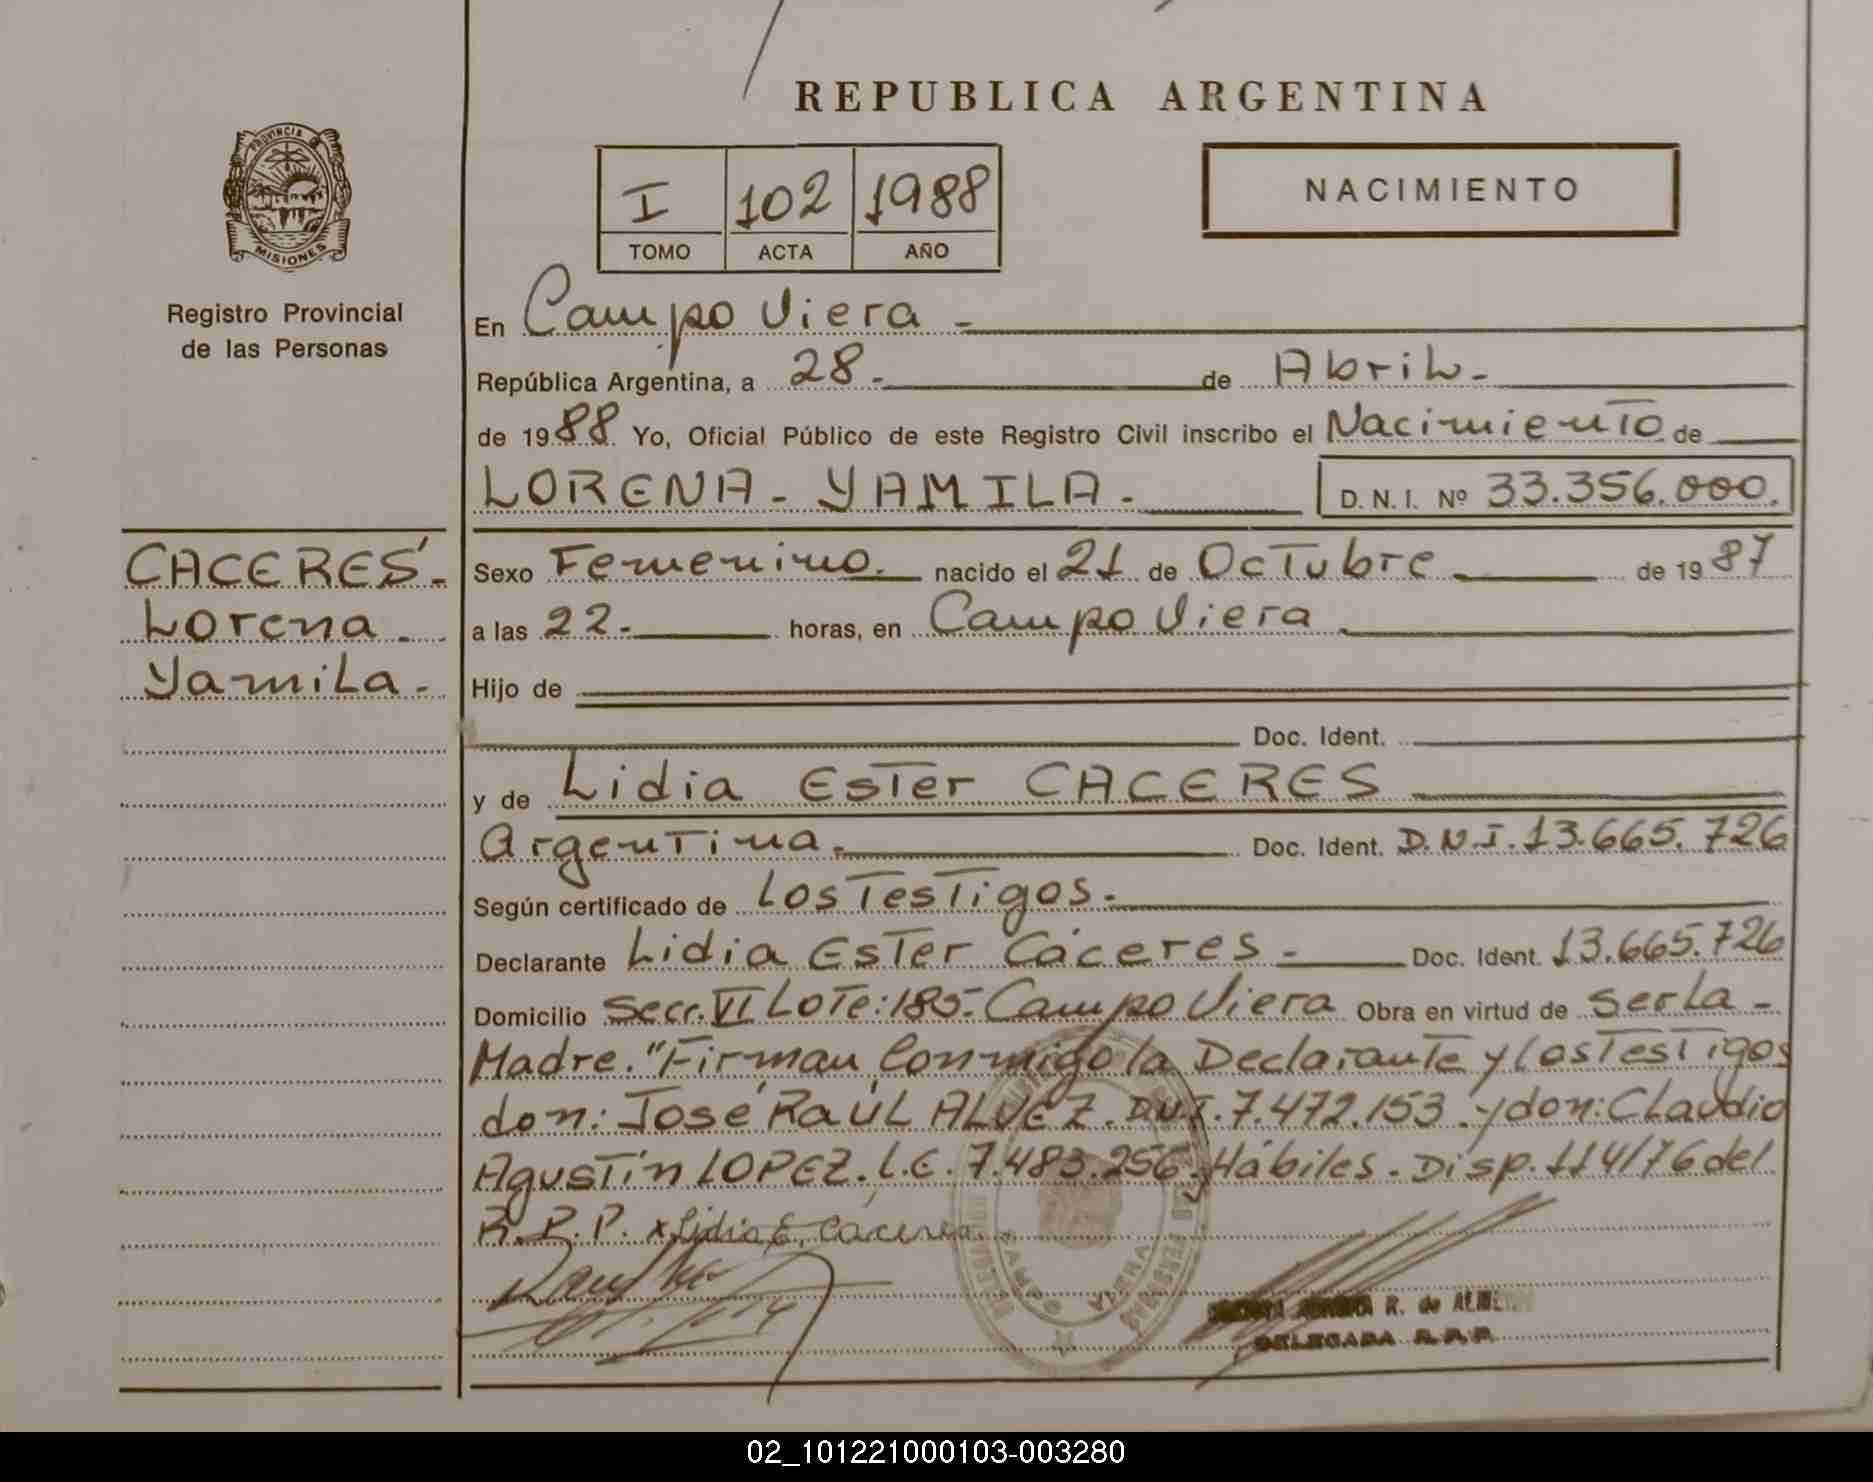 REPUBLICA ARGENTINA
PROVINCIA D
MISIONES
Registro Provincial
de las Personas
I 102 1988
TOMO ACTA AÑO
NACIMIENTO
En Campo Viera -
República Argentina, a 28. de Abril -
de 1988 Yo, Oficial Público de este Registro Civil inscribo el Nacimiento de
LORENA - YAMILA - D. N. I. Nº 33.356.000.
CACERES -
Lorena -
Yamila -
Sexo Femenino. nacido el 21 de Octubre de 1987
a las 22 - horas, en Campo Viera
Hijo de
Doc. Ident.
y de Lidia Ester CACERES
Argentina. Doc. Ident. D.N.I. 13.665.726
Según certificado de Los Testigos.
Declarante Lidia Ester Cáceres - Doc. Ident. 13.665.726
Domicilio Secc. VI Lote: 185- Campo Viera Obra en virtud de Ser La -
Madre. "Firman Conmigo la Declarante y los Testigos
don: José RaúL ALVEZ. D.N.I. 7.472.153 y don: Claudio
Agustín LOPEZ. L.E. 7.483.256. Hábiles. Disp. 114/76 del
R.P.P. x Lidia E, Caceres
R. de ALME
DELEGADA R.P.P.
02_101221000103-003280